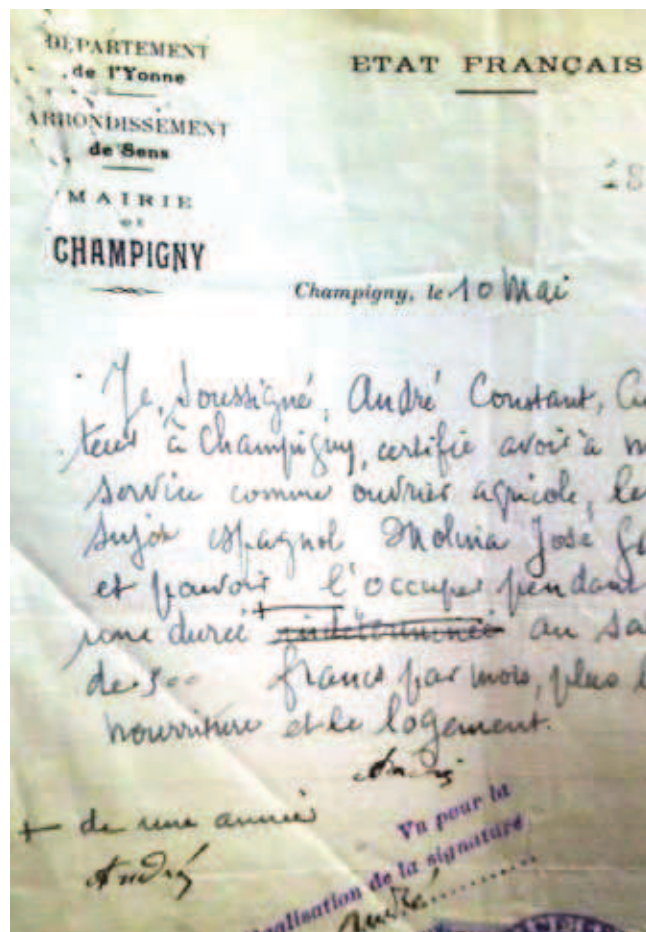 DÉPARTEMENT
de l'Yonne
ARRONDISSEMENT
de Sens
MAIRIE
DE
CHAMPIGNY
ETAT FRANÇAIS
Champigny, le 10 Mai
Je, Soussigné, André Constant, Cu
teur à Champigny, certifie avoir à m
service comme ouvrier agricole, le
sujet espagnol Molina José
et pouvoir l'occuper pendant
une durée + indéterminée au sa
de 500 francs par mois, plus l
nourriture et le logement.
André
+ de une année
André
Vu pour la
galisation de la signature
André